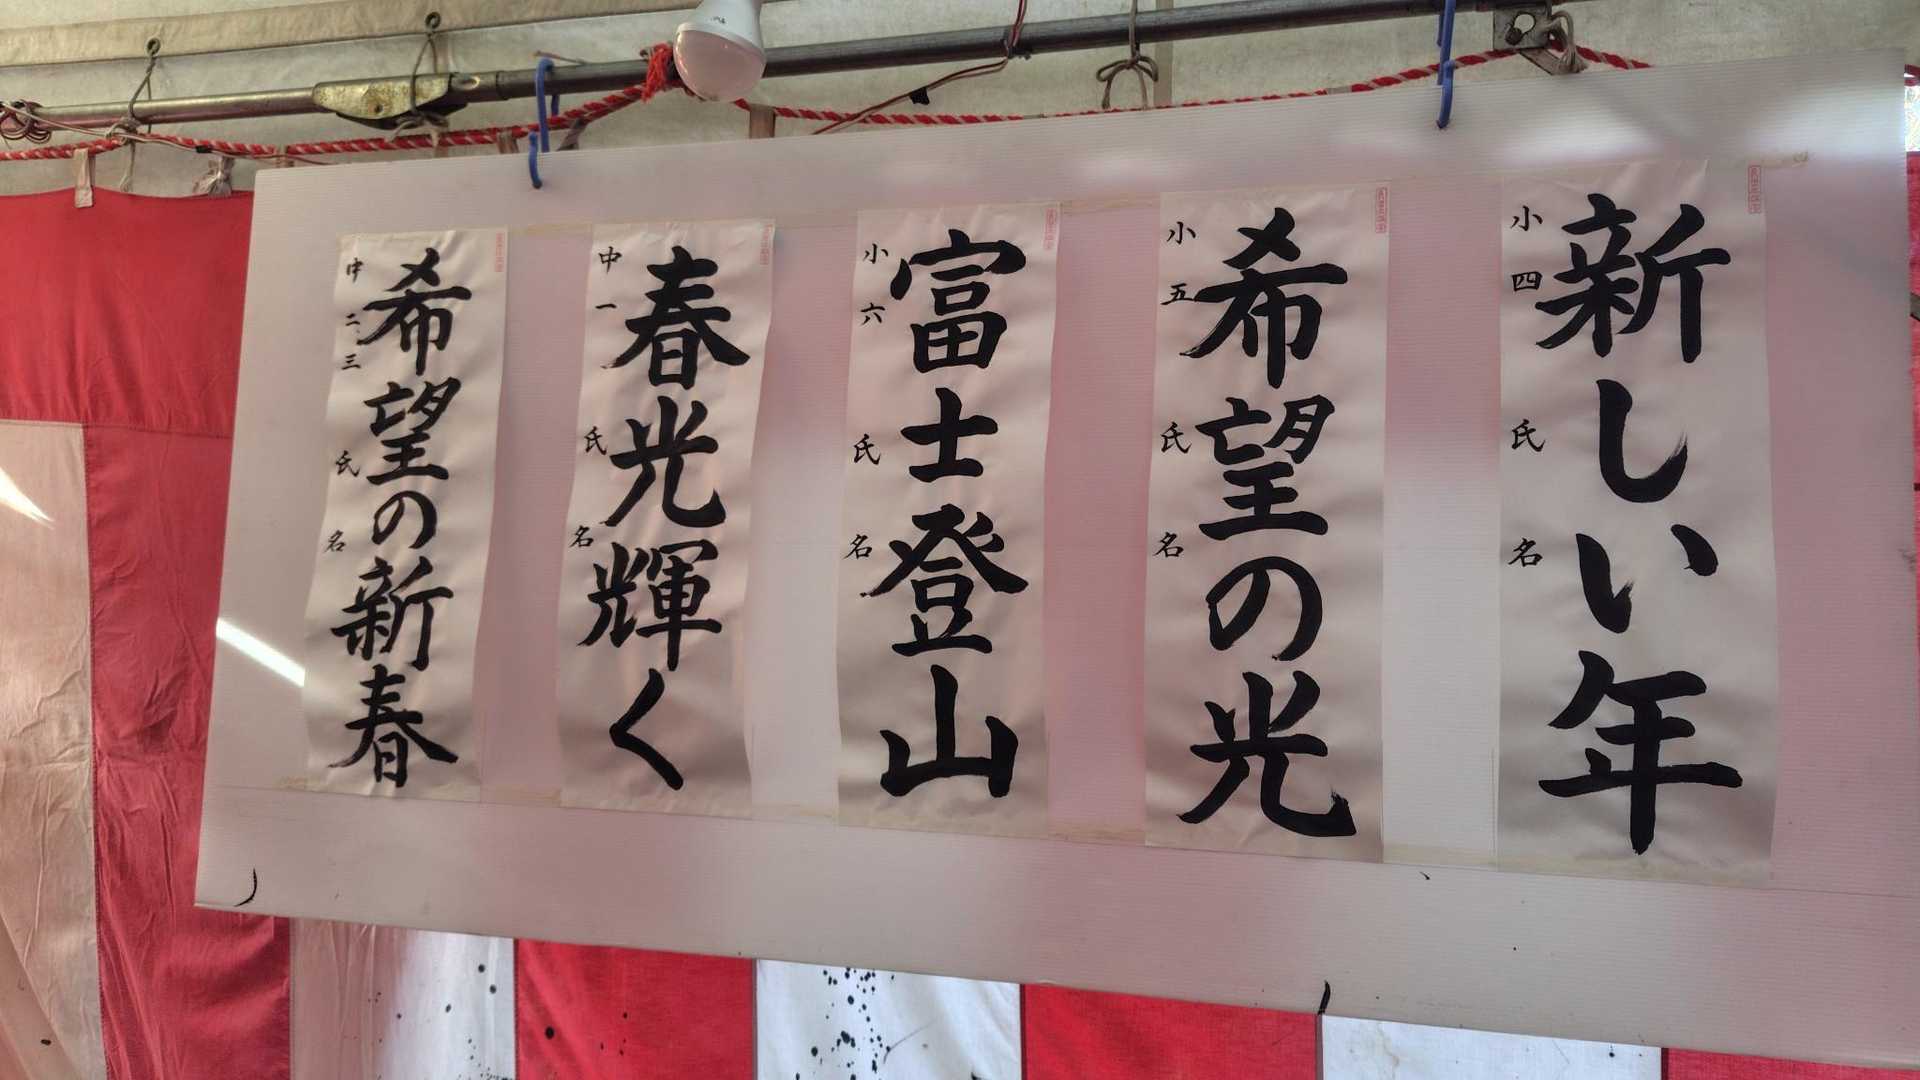 新しい年
小四 氏名
希望の光
小五 氏名
富士登山
小六 氏名
春光輝く
中一 氏名
希望の新春
中二、三 氏名